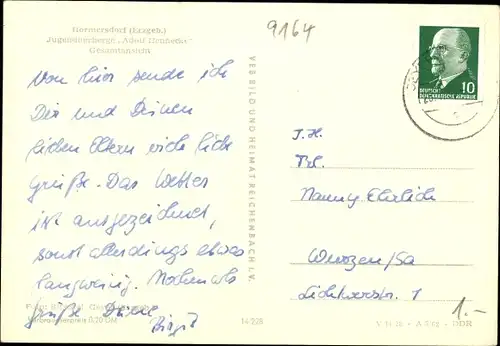 9164
Germersdorf (Erzgeb.)
Jugendherberge „Adolf Hennecke"
Gesamtansicht
Von hier sende ich
Dir und Deinen
lieben Eltern viele liebe
Grüße. Das Wetter
ist ausgezeichnet,
sonst allerdings etwas
langweilig. Nochmals
Grüße Deine
Birgit
Verbraucherpreis 0,20 DM
14/228
VEB BILD UND HEIMAT REICHENBACH I. V.
10
DEUTSCHE
DEMOKRATISCHE REPUBLIK
Frl.
Nanny Ehrlich
Wurzen/Sa
Lichtwerstr. 1
1.-
DDR